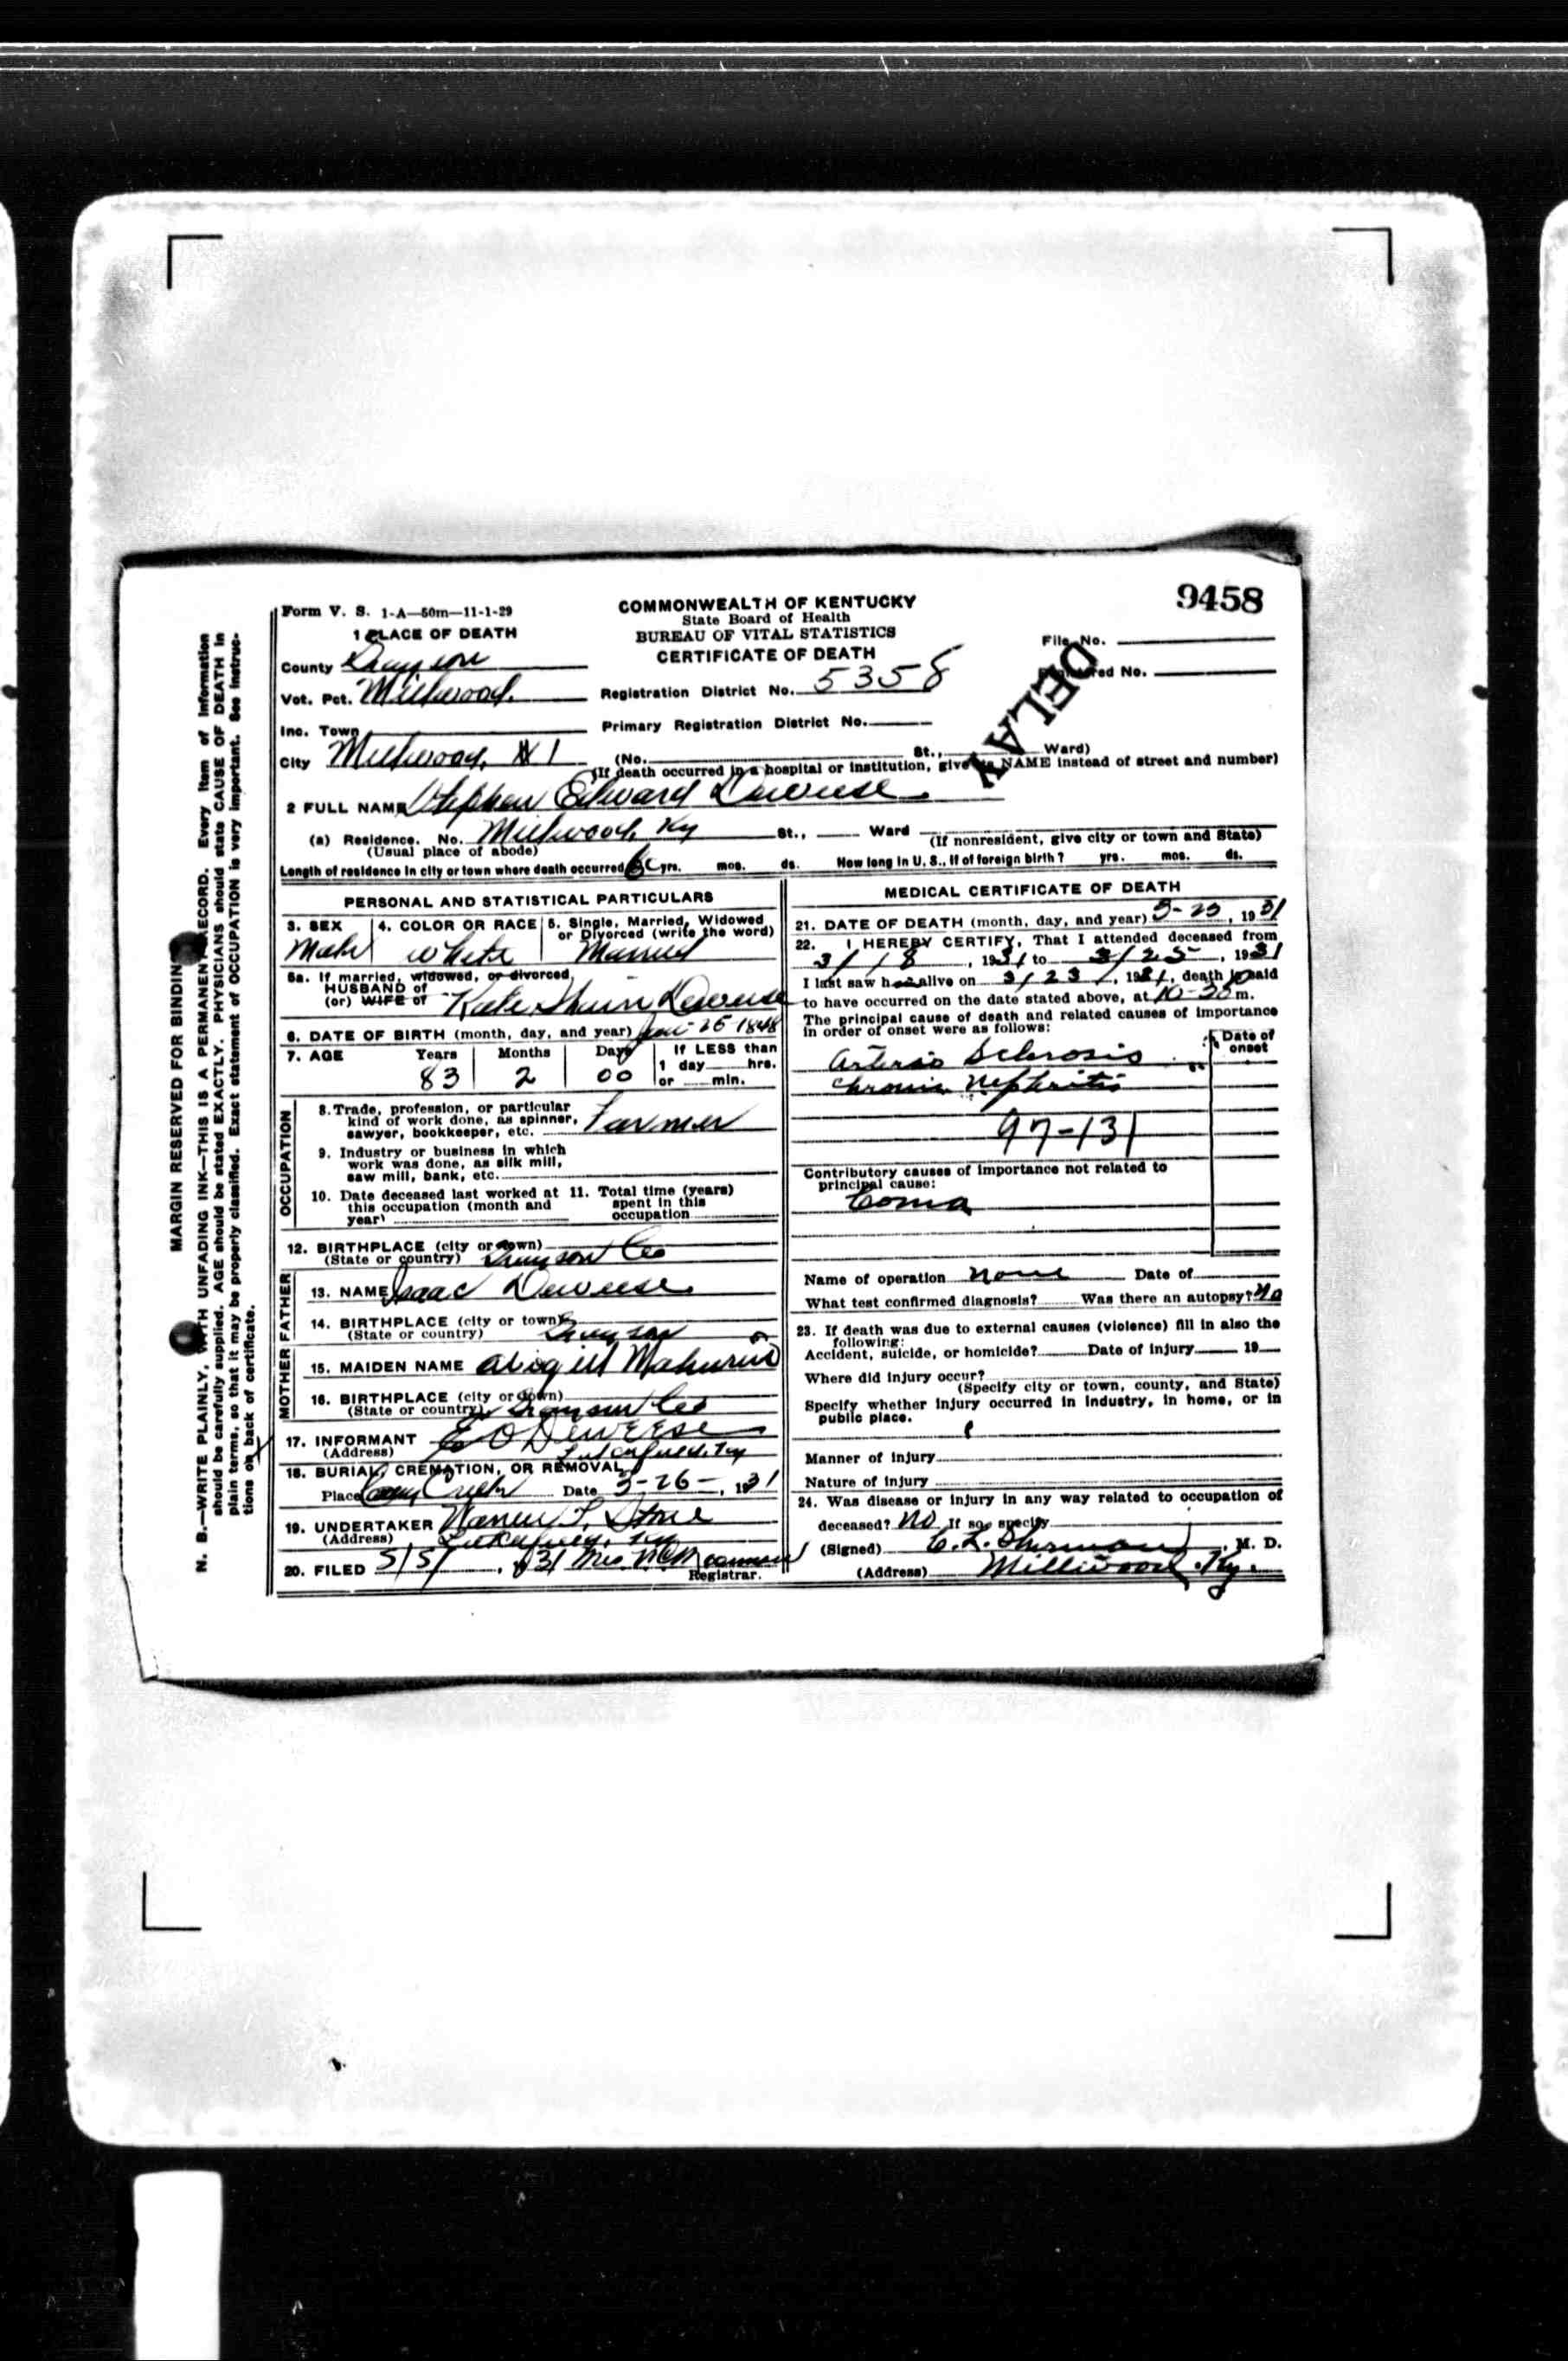 9458
Form V. S. 1-A—50m—11-1-29
COMMONWEALTH OF KENTUCKY
State Board of Health
BUREAU OF VITAL STATISTICS
CERTIFICATE OF DEATH
1 PLACE OF DEATH
File No.
County Grayson
No.
DELAY
Vot. Pct. Millwood.
Registration District No. 5358
Inc. Town
Primary Registration District No.
City Millwood, #1
(No. St., Ward)
(If death occurred in a hospital or institution, give its NAME instead of street and number)
2 FULL NAME Stephen Edward Deweese
(a) Residence. No. Millwood, Ky St., Ward
(Usual place of abode)
(If nonresident, give city or town and State)
Length of residence in city or town where death occurred yrs. mos. ds. How long in U. S., if of foreign birth? yrs. mos. ds.
PERSONAL AND STATISTICAL PARTICULARS
3. SEX
Male
4. COLOR OR RACE
White
5. Single, Married, Widowed
or Divorced (write the word)
Married
5a. If married, widowed, or divorced,
HUSBAND of
(or) WIFE of Kate Deweese
6. DATE OF BIRTH (month, day, and year) Jan-25-1848
7. AGE Years Months Days If LESS than
1 day hrs.
or min.
83 2 00
OCCUPATION
8. Trade, profession, or particular
kind of work done, as spinner,
sawyer, bookkeeper, etc. Farmer
9. Industry or business in which
work was done, as silk mill,
saw mill, bank, etc.
10. Date deceased last worked at
this occupation (month and
year)
11. Total time (years)
spent in this
occupation
12. BIRTHPLACE (city or town)
(State or country) Grayson Co
FATHER
13. NAME Isaac Deweese
14. BIRTHPLACE (city or town)
(State or country) Grayson
MOTHER
15. MAIDEN NAME Abigill Mahurin
16. BIRTHPLACE (city or town)
(State or country) Grayson Co
17. INFORMANT E O DEWEESE
(Address) Ky
18. BURIAL, CREMATION, OR REMOVAL
Place Creek Date 3-26-, 1931
19. UNDERTAKER Stone
(Address) Ky
20. FILED 5/5/, 1931 Mrs.
Registrar.
MEDICAL CERTIFICATE OF DEATH
21. DATE OF DEATH (month, day, and year) 3-25, 1931
22. I HEREBY CERTIFY, That I attended deceased from
3/18, 1931 to 3/25, 1931
I last saw h alive on 3/23/, 1931, death is said
to have occurred on the date stated above, at 10-30 m.
The principal cause of death and related causes of importance
in order of onset were as follows:
Date of
onset
Arterio Sclerosis
Chronic Nephritis
97-131
Contributory causes of importance not related to
principal cause:
Coma
Name of operation None Date of
What test confirmed diagnosis? Was there an autopsy? No
23. If death was due to external causes (violence) fill in also the
following:
Accident, suicide, or homicide? Date of injury 19
Where did injury occur?
(Specify city or town, county, and State)
Specify whether injury occurred in industry, in home, or in
public place.
Manner of injury
Nature of injury
24. Was disease or injury in any way related to occupation of
deceased? No If so, specify
(Signed) C. L. Sherman, M. D.
(Address) Millwood, Ky.
MARGIN RESERVED FOR BINDING
N. B.—WRITE PLAINLY, WITH UNFADING INK—THIS IS A PERMANENT RECORD. Every item of information
should be carefully supplied. AGE should be stated EXACTLY. PHYSICIANS should state CAUSE OF DEATH in
plain terms, so that it may be properly classified. Exact statement of OCCUPATION is very important. See instruc-
tions on back of certificate.